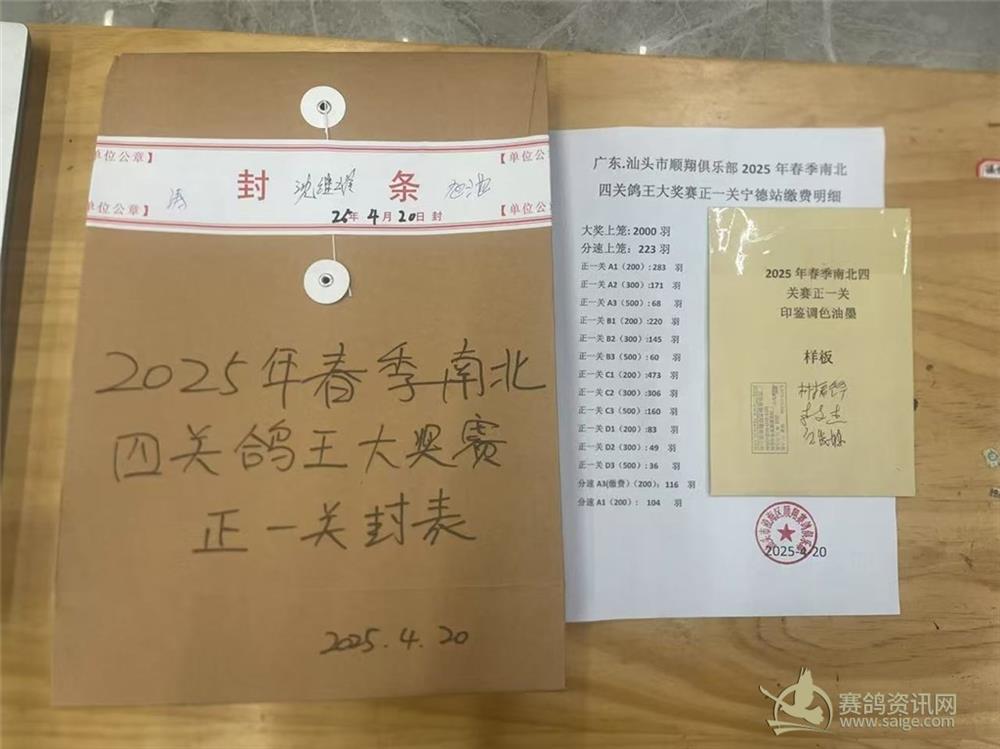 单位公章】
【单位公章
封 条
25年4月20日封
单位公章】
【单位公章
2025年春季南北
四关鸽王大奖赛
正一关封表
2025.4.20
广东.汕头市顺翔俱乐部2025年春季南北
四关鸽王大奖赛正一关宁德站缴费明细
大奖上笼:2000 羽
分速上笼: 223 羽
正一关 A1（200）: 283 羽
正一关 A2（300）:171 羽
正一关 A3（500）: 68 羽
正一关 B1（200）:220 羽
正一关 B2（300）:145 羽
正一关 B3（500）: 60 羽
正一关 C1（200）:473 羽
正一关 C2（300）:306 羽
正一关 C3（500）:160 羽
正一关 D1（200）: 83 羽
正一关 D2（300）: 49 羽
正一关 D3（500）: 36 羽
分速 A3(缴费)（200）: 116 羽
分速 A1（200）: 104 羽
2025-4-20
2025年春季南北四
关赛正一关
印鉴调色油墨
样板
赛鸽资讯网
www.saige.com